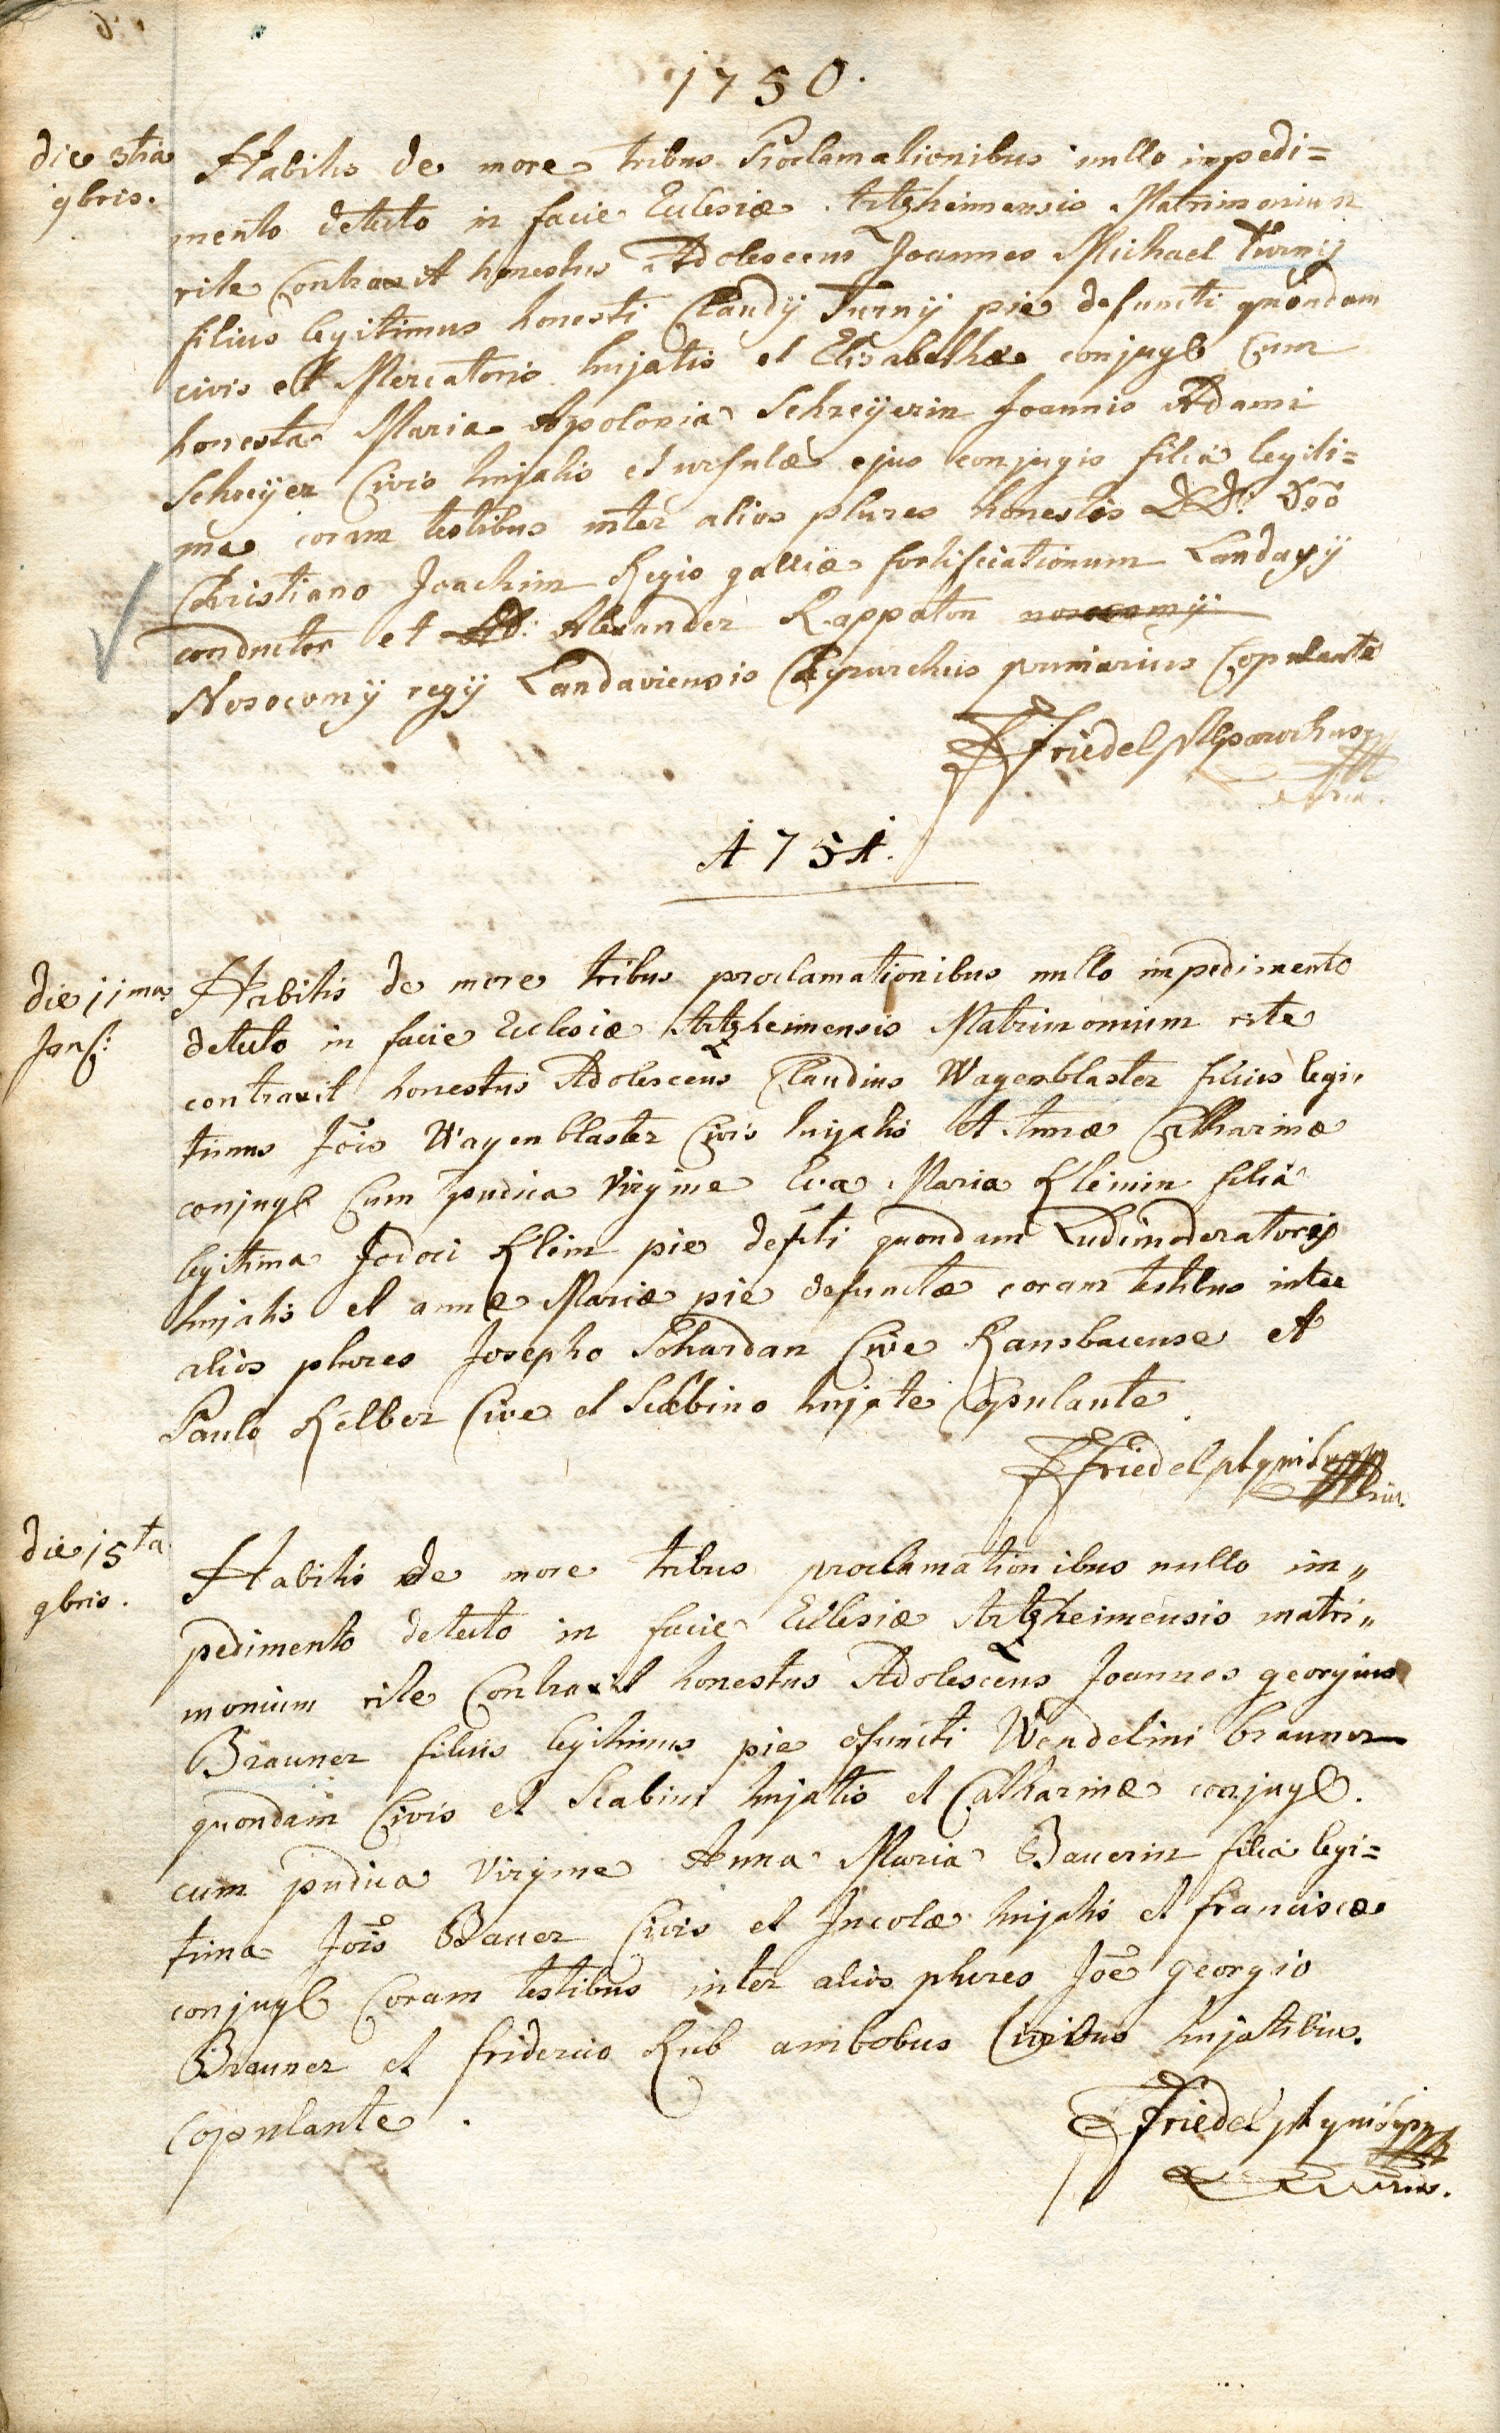 1750.
die 3tia
9bris.
Habitis de more tribus Proclamationibus nullo impedi=
mento detecto in facie Ecclesiæ Artzheimensis Matrimonium
rite Contraxit honestus Adolescens Joannes Michael Turnÿ
filius legitimus honesti Claudÿ Turnÿ pie defuncti quondam
civis et Mercatoris hujatis et Elisabethæ conjugū Cum
honesta Maria Apolonia Schreÿerin Joannis Adami
Schreÿer Civis hujatis et ursulæ ejus conjugis filia legiti=
ma coram testibus inter alios plures honestis DD: Dnō
Christiano Joachim Regis galliæ fortificationum Landavÿ
conductor et Alexander Rappaton
Nosocomÿ regÿ Landaviensis Chyrurchus primarius Copulante
Friedel Parochus
1751.
die 11ma
Jan:
Habitis de more tribus proclamationibus nullo impedimento
detecto in facie Ecclesiæ Artzheimensis Matrimonium rite
contraxit honestus Adolescens Claudius Wagenblaster filius legi„
timus Jōis Wagenblaster Civis hujatis et Annæ Catharinæ
conjugū Cum pudica Virgine Eva Maria Klemin filia
legitima Jodoci Klem pie defūti quondam Ludimoderatoris
hujatis et annæ Mariæ pie defunctæ coram testibus inter
alios plures Josepho Schardan Cive Ransbacense et
Paulo Kelber Cive et Scabino hujate Copulante
Friedel
die 15ta
9bris.
Habitis de more tribus proclamationibus nullo im„
pedimento detecto in facie Ecclesiæ Artzheimensis matri„
monium rite Contraxit honestus Adolescens Joannes georgius
Brauner filius legitimus pie dfuncti Wendelini brauner
quondam Civis et Scabini hujatis et Catharinæ conjugū.
cum pudica Virgine Anna Maria Bauerin filia legi=
tima Jōis Bauer Civis et Incolæ hujatis et franciscæ
conjugū Coram testibus inter alios plures Jōē georgio
Brauner et friderico Kub ambobus Civibus hujatibus.
Copulante.
Friedel